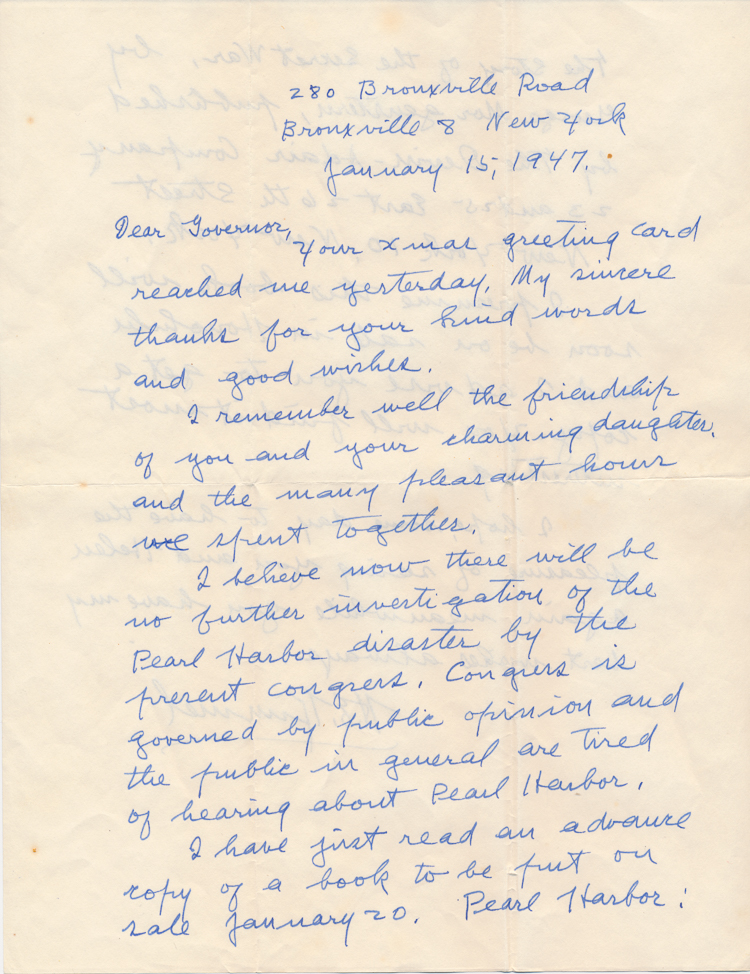 280 Bronxville Road
Bronxville 8 New York
January 15, 1947.
Dear Governor,
Your Xmas greeting card
reached me yesterday. My sincere
thanks for your kind words
and good wishes.
I remember well the friendship
of you and your charming daugater.
and the many pleasant hours
we spent together.
I believe now there will be
no further investigation of the
Pearl Harbor disaster by the
present congress. Congress is
governed by public opinion and
the public in general are tired
of hearing about Pearl Harbor.
I have just read an advance
copy of a book to be put on
sale January 20. Pearl Harbor: